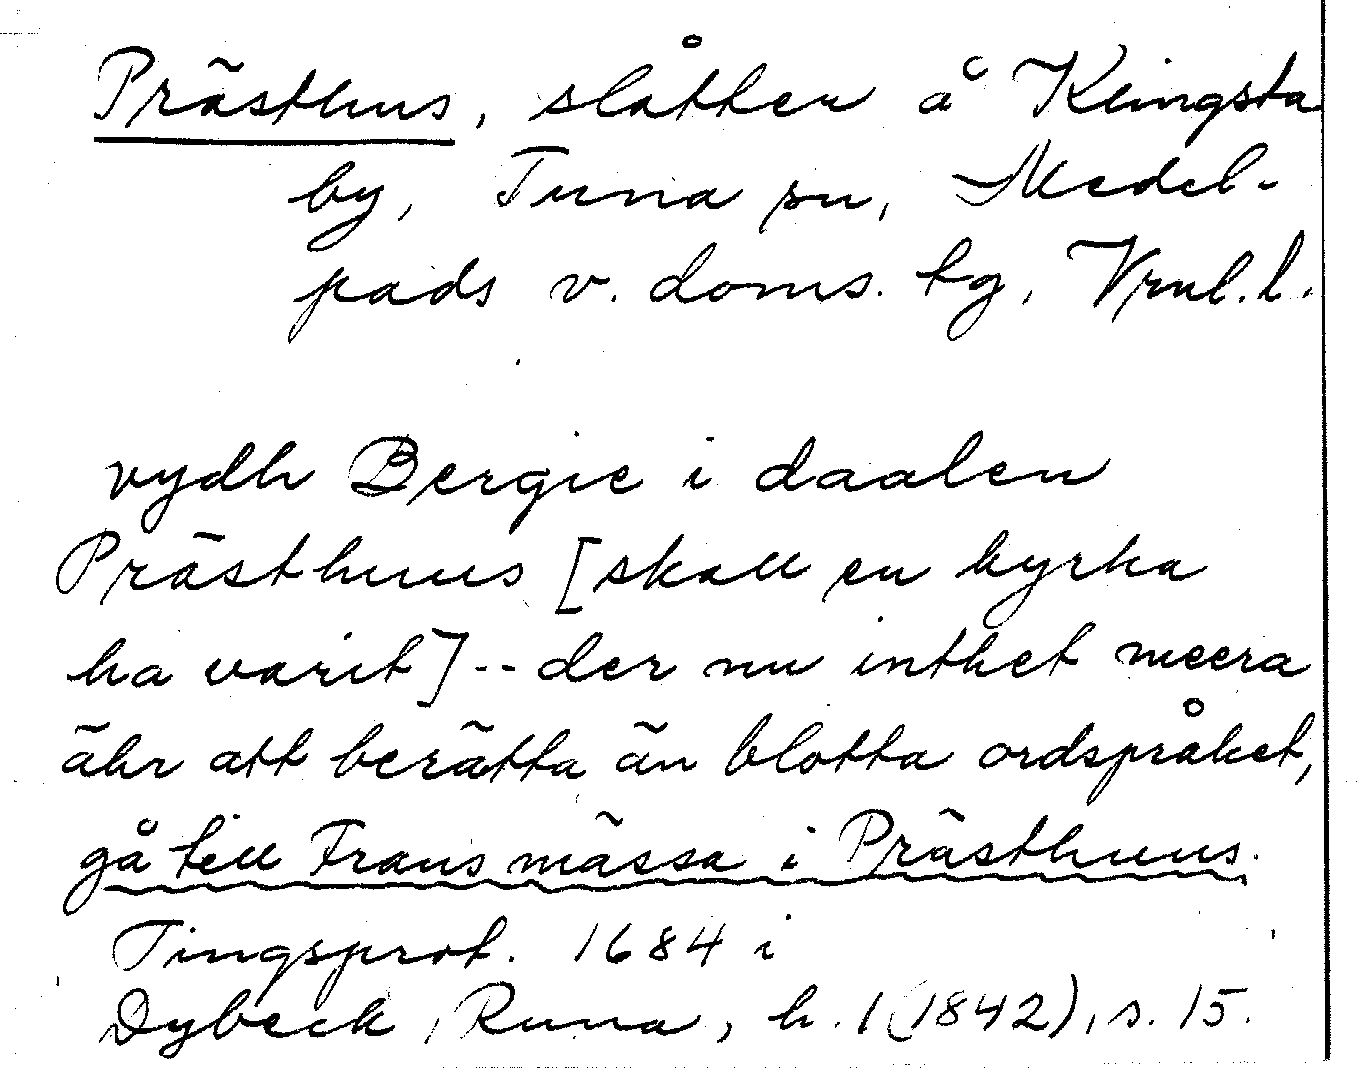 Prästhus, slåtten å Klingsta
by, Tuna sn, Medel-
pads v. doms. tg, Vrnl. l.
vydh Bergie i daalen
Prästhuus [skall en kyrka
ha varit] -- der nu inthet meera
ähr att berätta än blotta ordspråket,
gå till Frans mässa i Prästhuus.
Tingsprot. 1684 i
Dybeck, Runa, h. 1 (1842), s. 15.